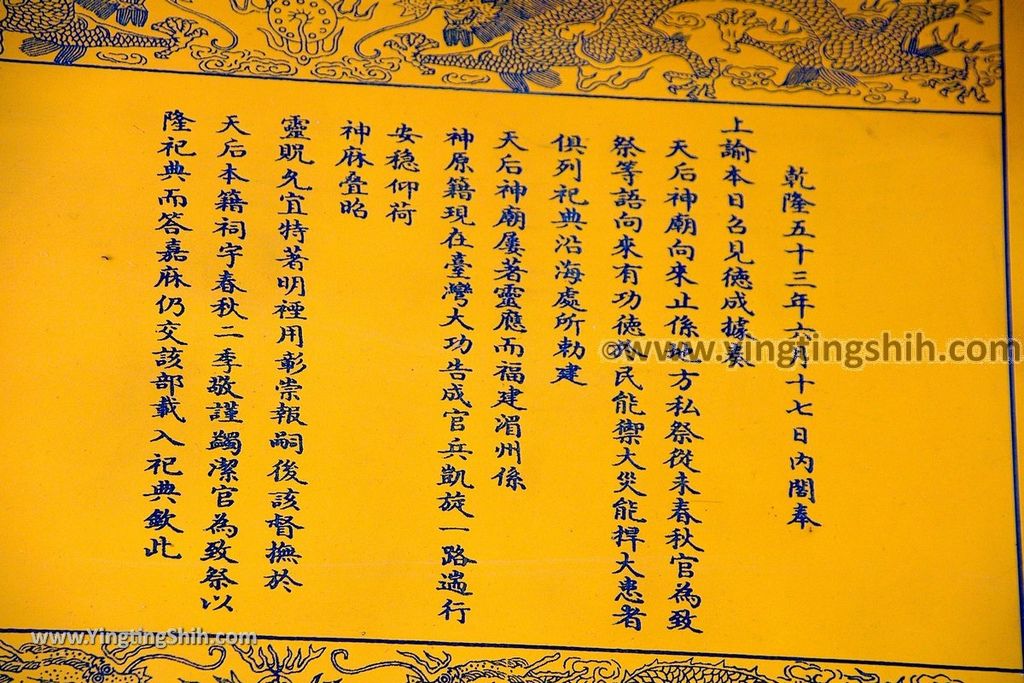 乾隆五十三年六月十七日內閣奉
上諭本日召見德成據奏
天后神廟向來止係地方私祭從未春秋官為致
祭等語向來有功德於民能禦大災能捍大患者
俱列祀典沿海處所勅建
天后神廟屢著靈應而福建湄州係
神原籍現在臺灣大功告成官兵凱旋一路遄行
安穩仰荷
神庥叠昭
靈貺允宜特著明禋用彰崇報嗣後該督撫於
天后本籍祠宇春秋二季敬謹蠲潔官為致祭以
隆祀典而答嘉庥仍交該部載入祀典欽此
©www.yingtingshih.com
www.YingtingShih.com